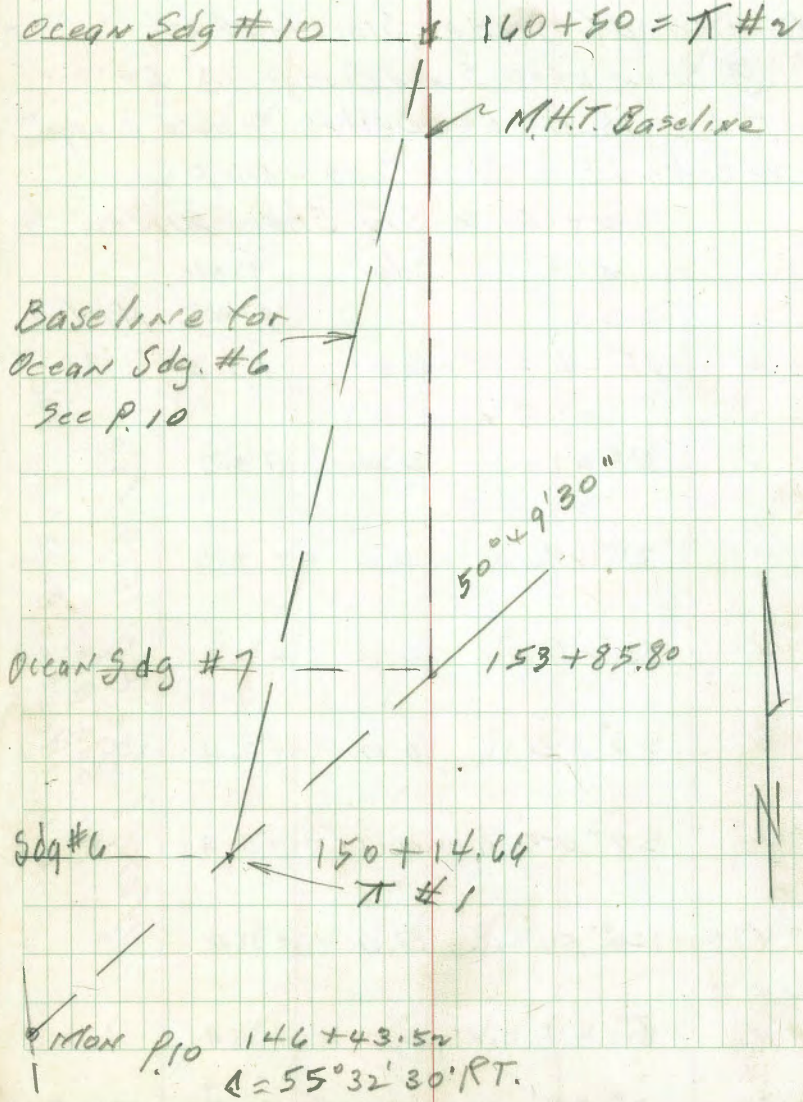 Ocean Sdg #10 160+50 = ⊼ #2
M.H.T. Baseline
Baseline for
Ocean Sdg. #6
See P. 10
50°+9'30"
Ocean Sdg #7 153+85.80
Sdg #6 150+14.66
⊼ #1
N
Mon P.10 146+43.52
Δ=55°32'30" RT.